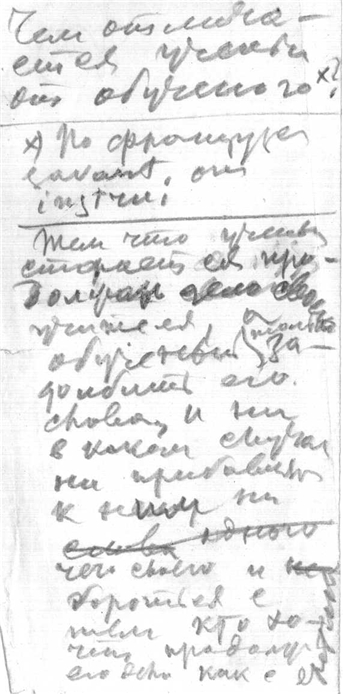 Чем отлича-
ется ученый
от обученого x)?
x) По француски
savant, от
instrui
Тем что ученый
старается про-
должать дело своего
учителя, а
обученый только за-
долбит его
слова, и ни
в каком случае
не прибавляет
к ним ни
слова одного
чего своего и
борется с
тем кто хо-
чет продолж
его дело как с